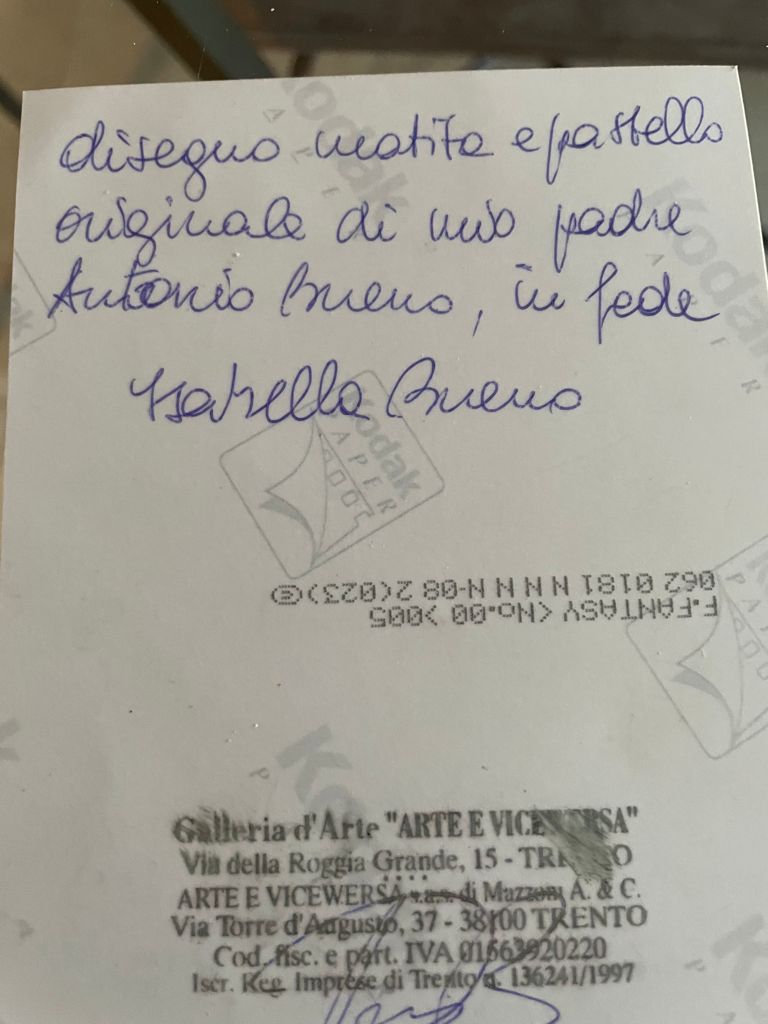 disegno matita e pastello
originale di mio padre
Antonio Bueno, in fede
Isabella Bueno
Kodak
PAPER
F.FANTASY <No.00 >005
062 0181 N N N N-08 2(023)@
Galleria d'Arte "ARTE E VICEWERSA"
Via della Roggia Grande, 15 - TRENTO
ARTE E VICEWERSA s.a.s. di Mazzoni A. & C.
Via Torre d'Augusto, 37 - 38100 TRENTO
Cod. fisc. e part. IVA 01663920220
Iscr. Reg. Imprese di Trento n. 136241/1997